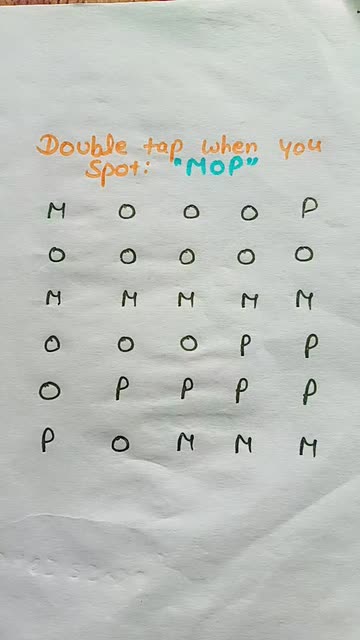 Double tap when you
Spot: "MOP"
M O O O P
O O O O O
M M M M M
O O O P P
O P P P P
P O M M M